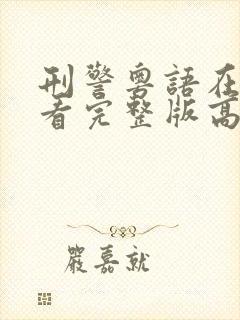 刑警粵語在
看完整版高
嚴嘉就